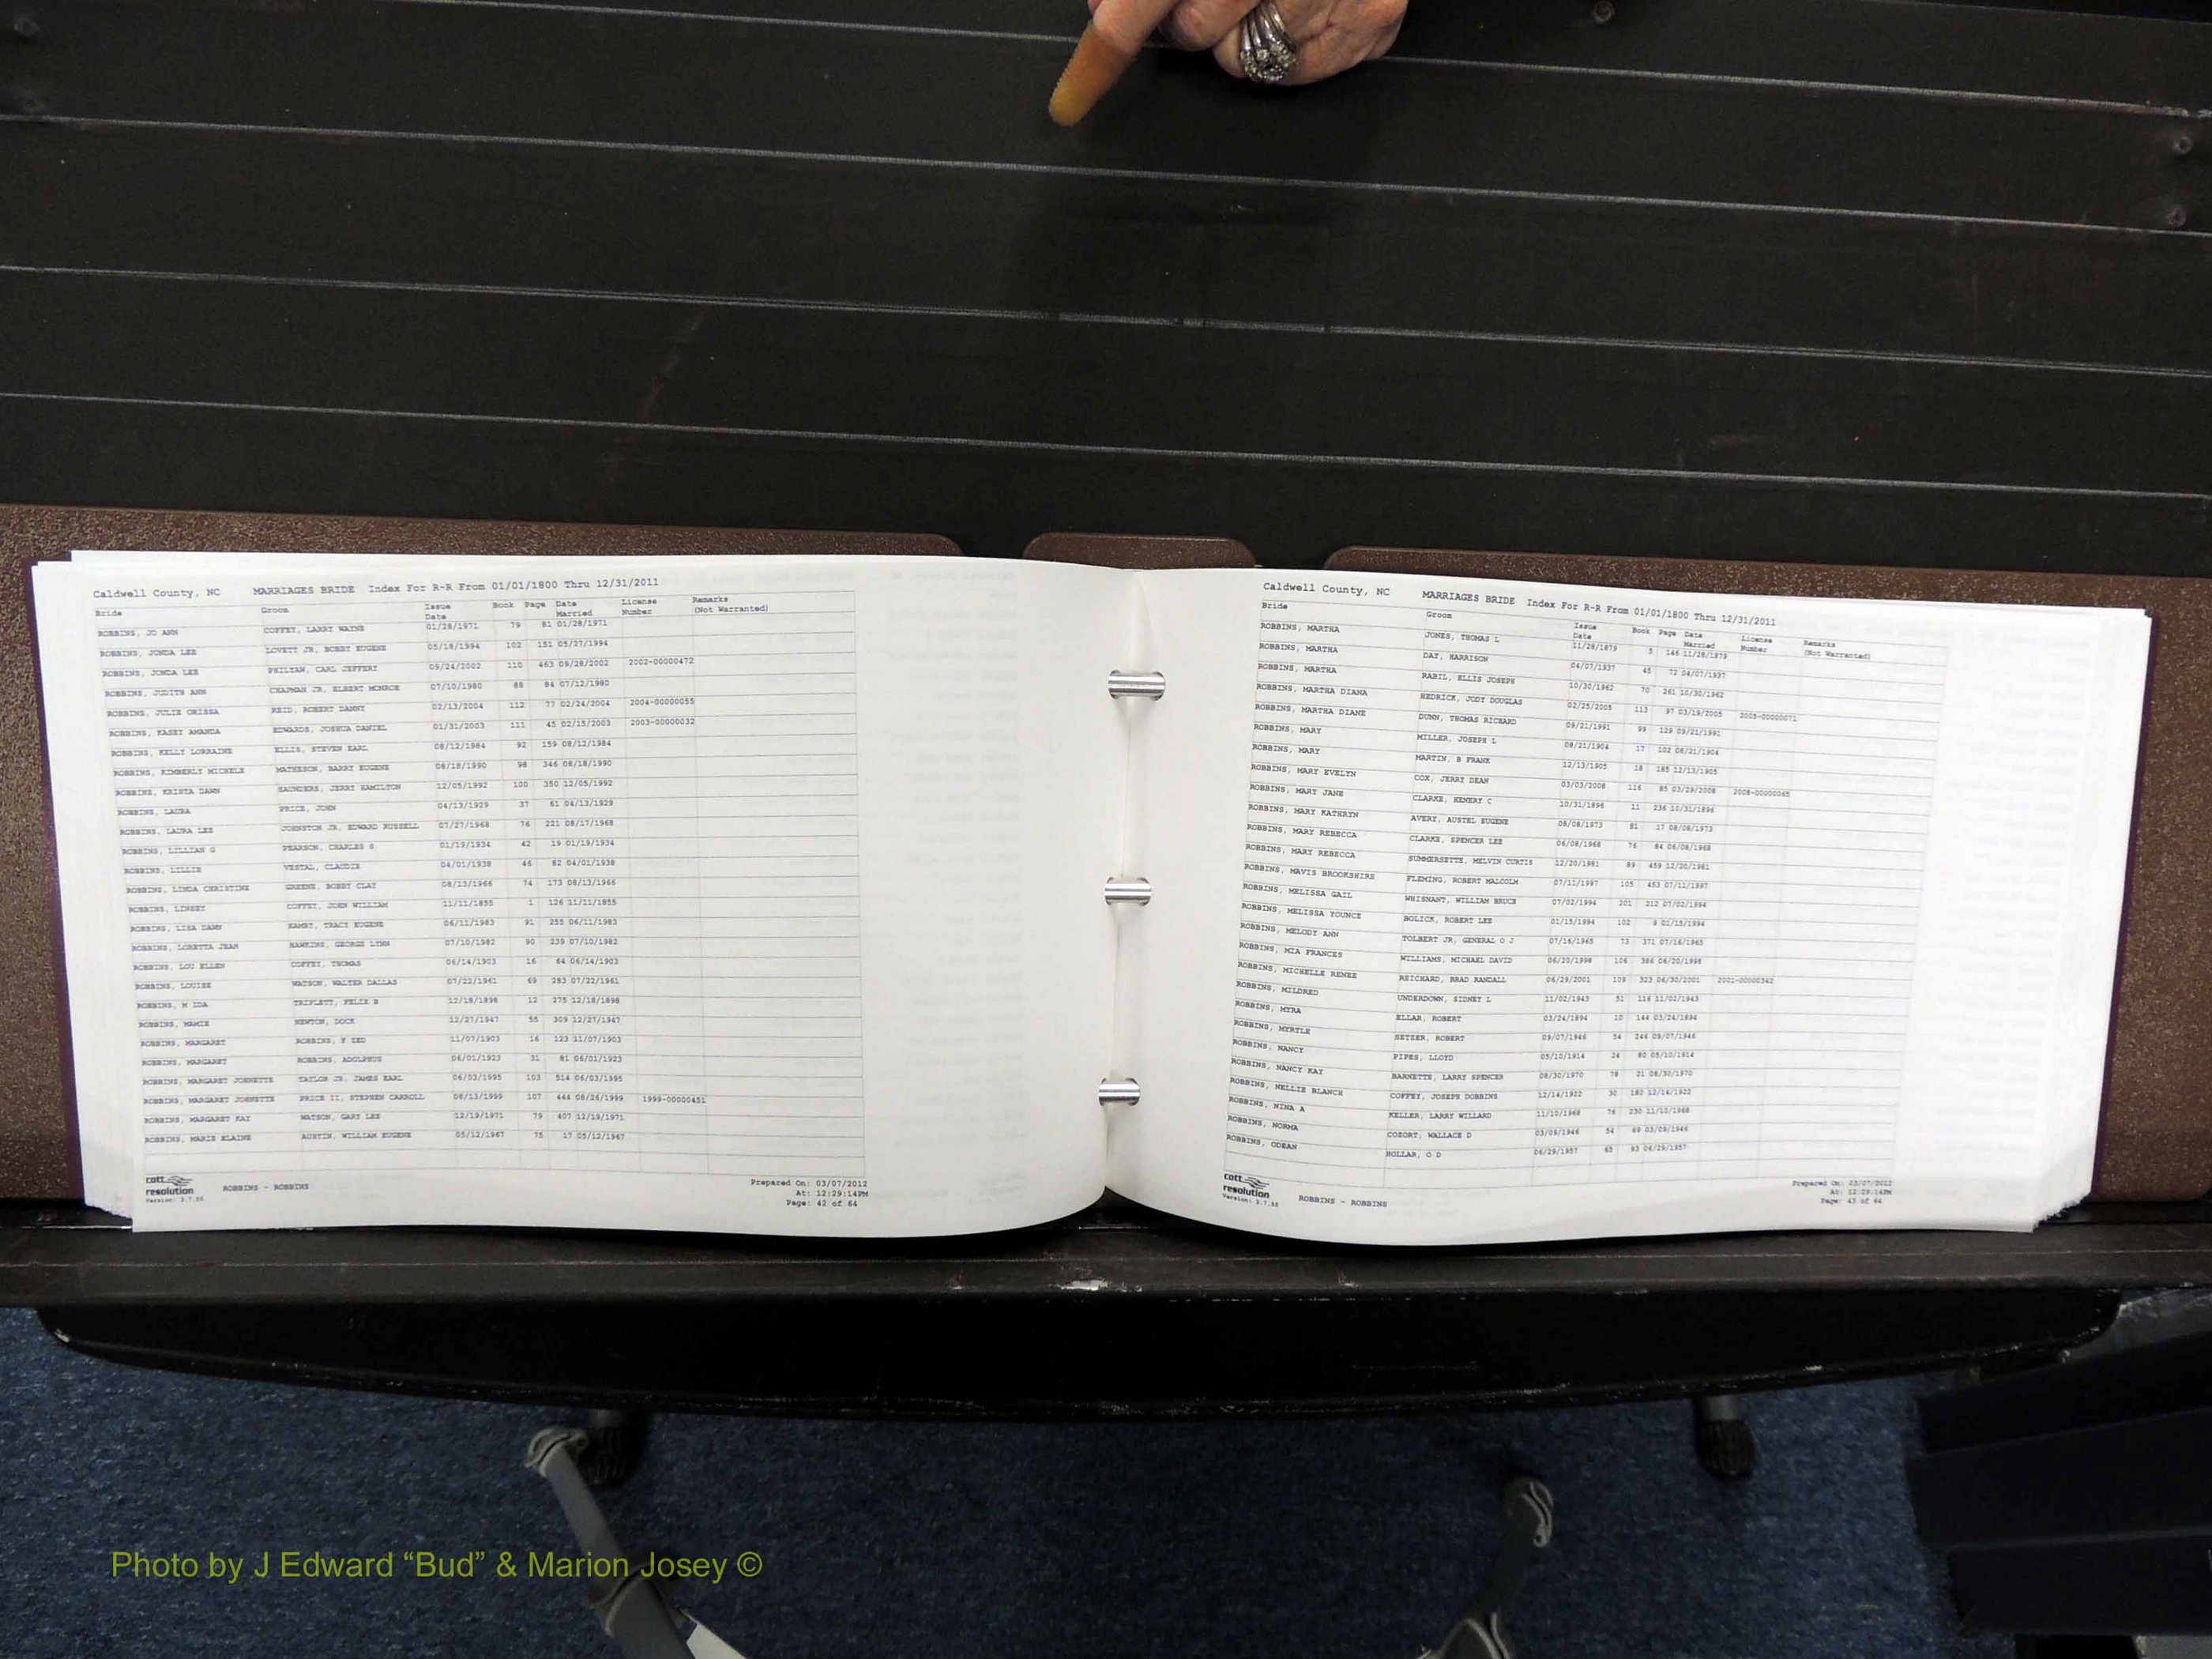 Caldwell County, NC MARRIAGES BRIDE Index For R-R From 01/01/1800 Thru 12/31/2011
Bride Groom Issue Date Book Page Date Married License Number Remarks (Not Warranted)
ROBBINS, JO ANN COFFEY, LARRY WAYNE 01/28/1971 79 81 01/28/1971
ROBBINS, JONDA LEE LOVETT JR, BOBBY EUGENE 05/18/1994 102 151 05/27/1994
ROBBINS, JONDA LEE PHILYAW, CARL JEFFERY 09/24/2002 110 463 09/28/2002 2002-00000472
ROBBINS, JUDITH ANN CHAPMAN JR, ELBERT MONROE 07/10/1980 88 84 07/12/1980
ROBBINS, JULIE ORISSA REID, ROBERT DANNY 02/13/2004 112 77 02/24/2004 2004-00000055
ROBBINS, KASEY AMANDA EDWARDS, JOSHUA DANIEL 01/31/2003 111 45 02/15/2003 2003-00000032
ROBBINS, KELLY LORRAINE ELLIS, STEVEN EARL 08/12/1984 92 159 08/12/1984
ROBBINS, KIMBERLY MICHELE MATHESON, BARRY EUGENE 08/18/1990 98 346 08/18/1990
ROBBINS, KRISTA DAWN SAUNDERS, JERRY HAMILTON 12/05/1992 100 350 12/05/1992
ROBBINS, LAURA PRICE, JOHN 04/13/1929 37 61 04/13/1929
ROBBINS, LAURA LEE JOHNSTON JR, EDWARD RUSSELL 07/27/1968 76 221 08/17/1968
ROBBINS, LILLIAN G PEARSON, CHARLES S 01/19/1934 42 19 01/19/1934
ROBBINS, LILLIE VESTAL, CLAUDIE 04/01/1938 46 82 04/01/1938
ROBBINS, LINDA CHRISTINE GREENE, BOBBY CLAY 08/13/1966 74 173 08/13/1966
ROBBINS, LINSEY COFFEY, JOHN WILLIAM 11/11/1855 1 126 11/11/1855
ROBBINS, LISA DAWN HAMBY, TRACY EUGENE 06/11/1983 91 255 06/11/1983
ROBBINS, LORETTA JEAN HAWKINS, GEORGE LYNN 07/10/1982 90 239 07/10/1982
ROBBINS, LOU ELLEN COFFEY, THOMAS 06/14/1903 16 64 06/14/1903
ROBBINS, LOUISE WATSON, WALTER DALLAS 07/22/1961 69 283 07/22/1961
ROBBINS, M IDA TRIPLETT, FELIX B 12/18/1898 12 275 12/18/1898
ROBBINS, MAMIE NEWTON, DOCK 12/27/1947 55 309 12/27/1947
ROBBINS, MARGARET ROBBINS, F ZED 11/07/1903 16 123 11/07/1903
ROBBINS, MARGARET ROBBINS, ADOLPHUS 06/01/1923 31 81 06/01/1923
ROBBINS, MARGARET JOHNETTE TAYLOR JR, JAMES EARL 06/03/1995 103 514 06/03/1995
ROBBINS, MARGARET JOHNETTE PRICE II, STEPHEN CARROLL 08/13/1999 107 444 08/26/1999 1999-00000451
ROBBINS, MARGARET KAY WATSON, GARY LEE 12/19/1971 79 407 12/19/1971
ROBBINS, MARIE ELAINE AUSTIN, WILLIAM EUGENE 05/12/1967 75 17 05/12/1967
cott resolution Version: 3.7.55 ROBBINS - ROBBINS
Prepared On: 03/07/2012
At: 12:29:14PM
Page: 42 of 64
Caldwell County, NC MARRIAGES BRIDE Index For R-R From 01/01/1800 Thru 12/31/2011
Bride Groom Issue Date Book Page Date Married License Number Remarks (Not Warranted)
ROBBINS, MARTHA JONES, THOMAS L 11/28/1879 5 146 11/28/1879
ROBBINS, MARTHA DAY, HARRISON 04/07/1937 45 72 04/07/1937
ROBBINS, MARTHA RABIL, ELLIS JOSEPH 10/30/1962 70 261 10/30/1962
ROBBINS, MARTHA DIANA HEDRICK, JODY DOUGLAS 02/25/2005 113 97 03/19/2005 2005-00000071
ROBBINS, MARTHA DIANE DUNN, THOMAS RICHARD 09/21/1991 99 129 09/21/1991
ROBBINS, MARY MILLER, JOSEPH L 08/21/1904 17 102 08/21/1904
ROBBINS, MARY MARTIN, B FRANK 12/13/1905 18 185 12/13/1905
ROBBINS, MARY EVELYN COX, JERRY DEAN 03/03/2008 116 85 03/29/2008 2008-00000065
ROBBINS, MARY JANE CLARKE, HENERY C 10/31/1896 11 236 10/31/1896
ROBBINS, MARY KATHRYN AVERY, AUSTEL EUGENE 08/08/1973 81 17 08/08/1973
ROBBINS, MARY REBECCA CLARKE, SPENCER LEE 06/08/1968 76 84 06/08/1968
ROBBINS, MARY REBECCA SUMMERSETTE, MELVIN CURTIS 12/20/1981 89 459 12/20/1981
ROBBINS, MAVIS BROOKSHIRE FLEMING, ROBERT MALCOLM 07/11/1997 105 453 07/11/1997
ROBBINS, MELISSA GAIL WHISNANT, WILLIAM BRUCE 07/02/1994 201 212 07/02/1994
ROBBINS, MELISSA YOUNCE BOLICK, ROBERT LEE 01/15/1994 102 9 01/15/1994
ROBBINS, MELODY ANN TOLBERT JR, GENERAL O J 07/16/1965 73 371 07/16/1965
ROBBINS, MIA FRANCES WILLIAMS, MICHAEL DAVID 06/20/1998 106 386 06/20/1998
ROBBINS, MICHELLE RENEE REICHARD, BRAD RANDALL 06/29/2001 109 323 06/30/2001 2001-00000362
ROBBINS, MILDRED UNDERDOWN, SIDNEY L 11/02/1943 51 118 11/02/1943
ROBBINS, MYRA ELLAR, ROBERT 03/24/1894 10 144 03/24/1894
ROBBINS, MYRTLE SETZER, ROBERT 09/07/1946 54 246 09/07/1946
ROBBINS, NANCY PIPES, LLOYD 05/10/1914 24 80 05/10/1914
ROBBINS, NANCY KAY BARNETTE, LARRY SPENCER 08/30/1970 78 21 08/30/1970
ROBBINS, NELLIE BLANCH COFFEY, JOSEPH DOBBINS 12/14/1922 30 180 12/14/1922
ROBBINS, NINA A KELLER, LARRY WILLARD 11/10/1968 76 230 11/10/1968
ROBBINS, NORMA COZORT, WALLACE D 03/09/1946 54 69 03/09/1946
ROBBINS, ODEAN HOLLAR, O D 06/29/1957 65 93 06/29/1957
cott resolution Version: 3.7.55 ROBBINS - ROBBINS
Prepared On: 03/07/2012
At: 12:29:14PM
Page: 43 of 64
Photo by J Edward “Bud” & Marion Josey ©